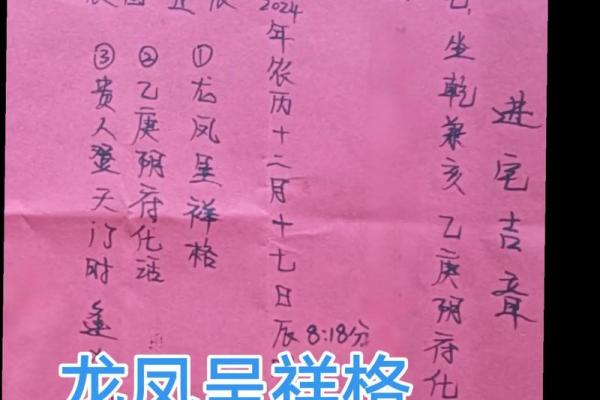 进宅吉章
坐乾兼亥乙庚阴府化
2024年农历十二月十七日辰8:18分
①龙凤呈祥格
②乙庚阴府化活
③贵人登天门时逢
龙凤呈祥格